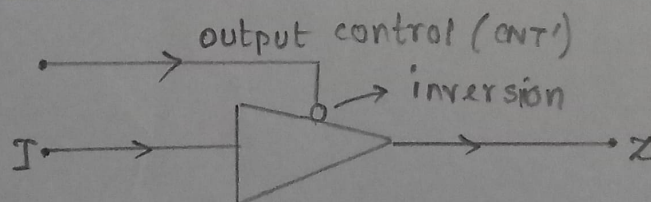 output control (CNT')
inversion
I
Z